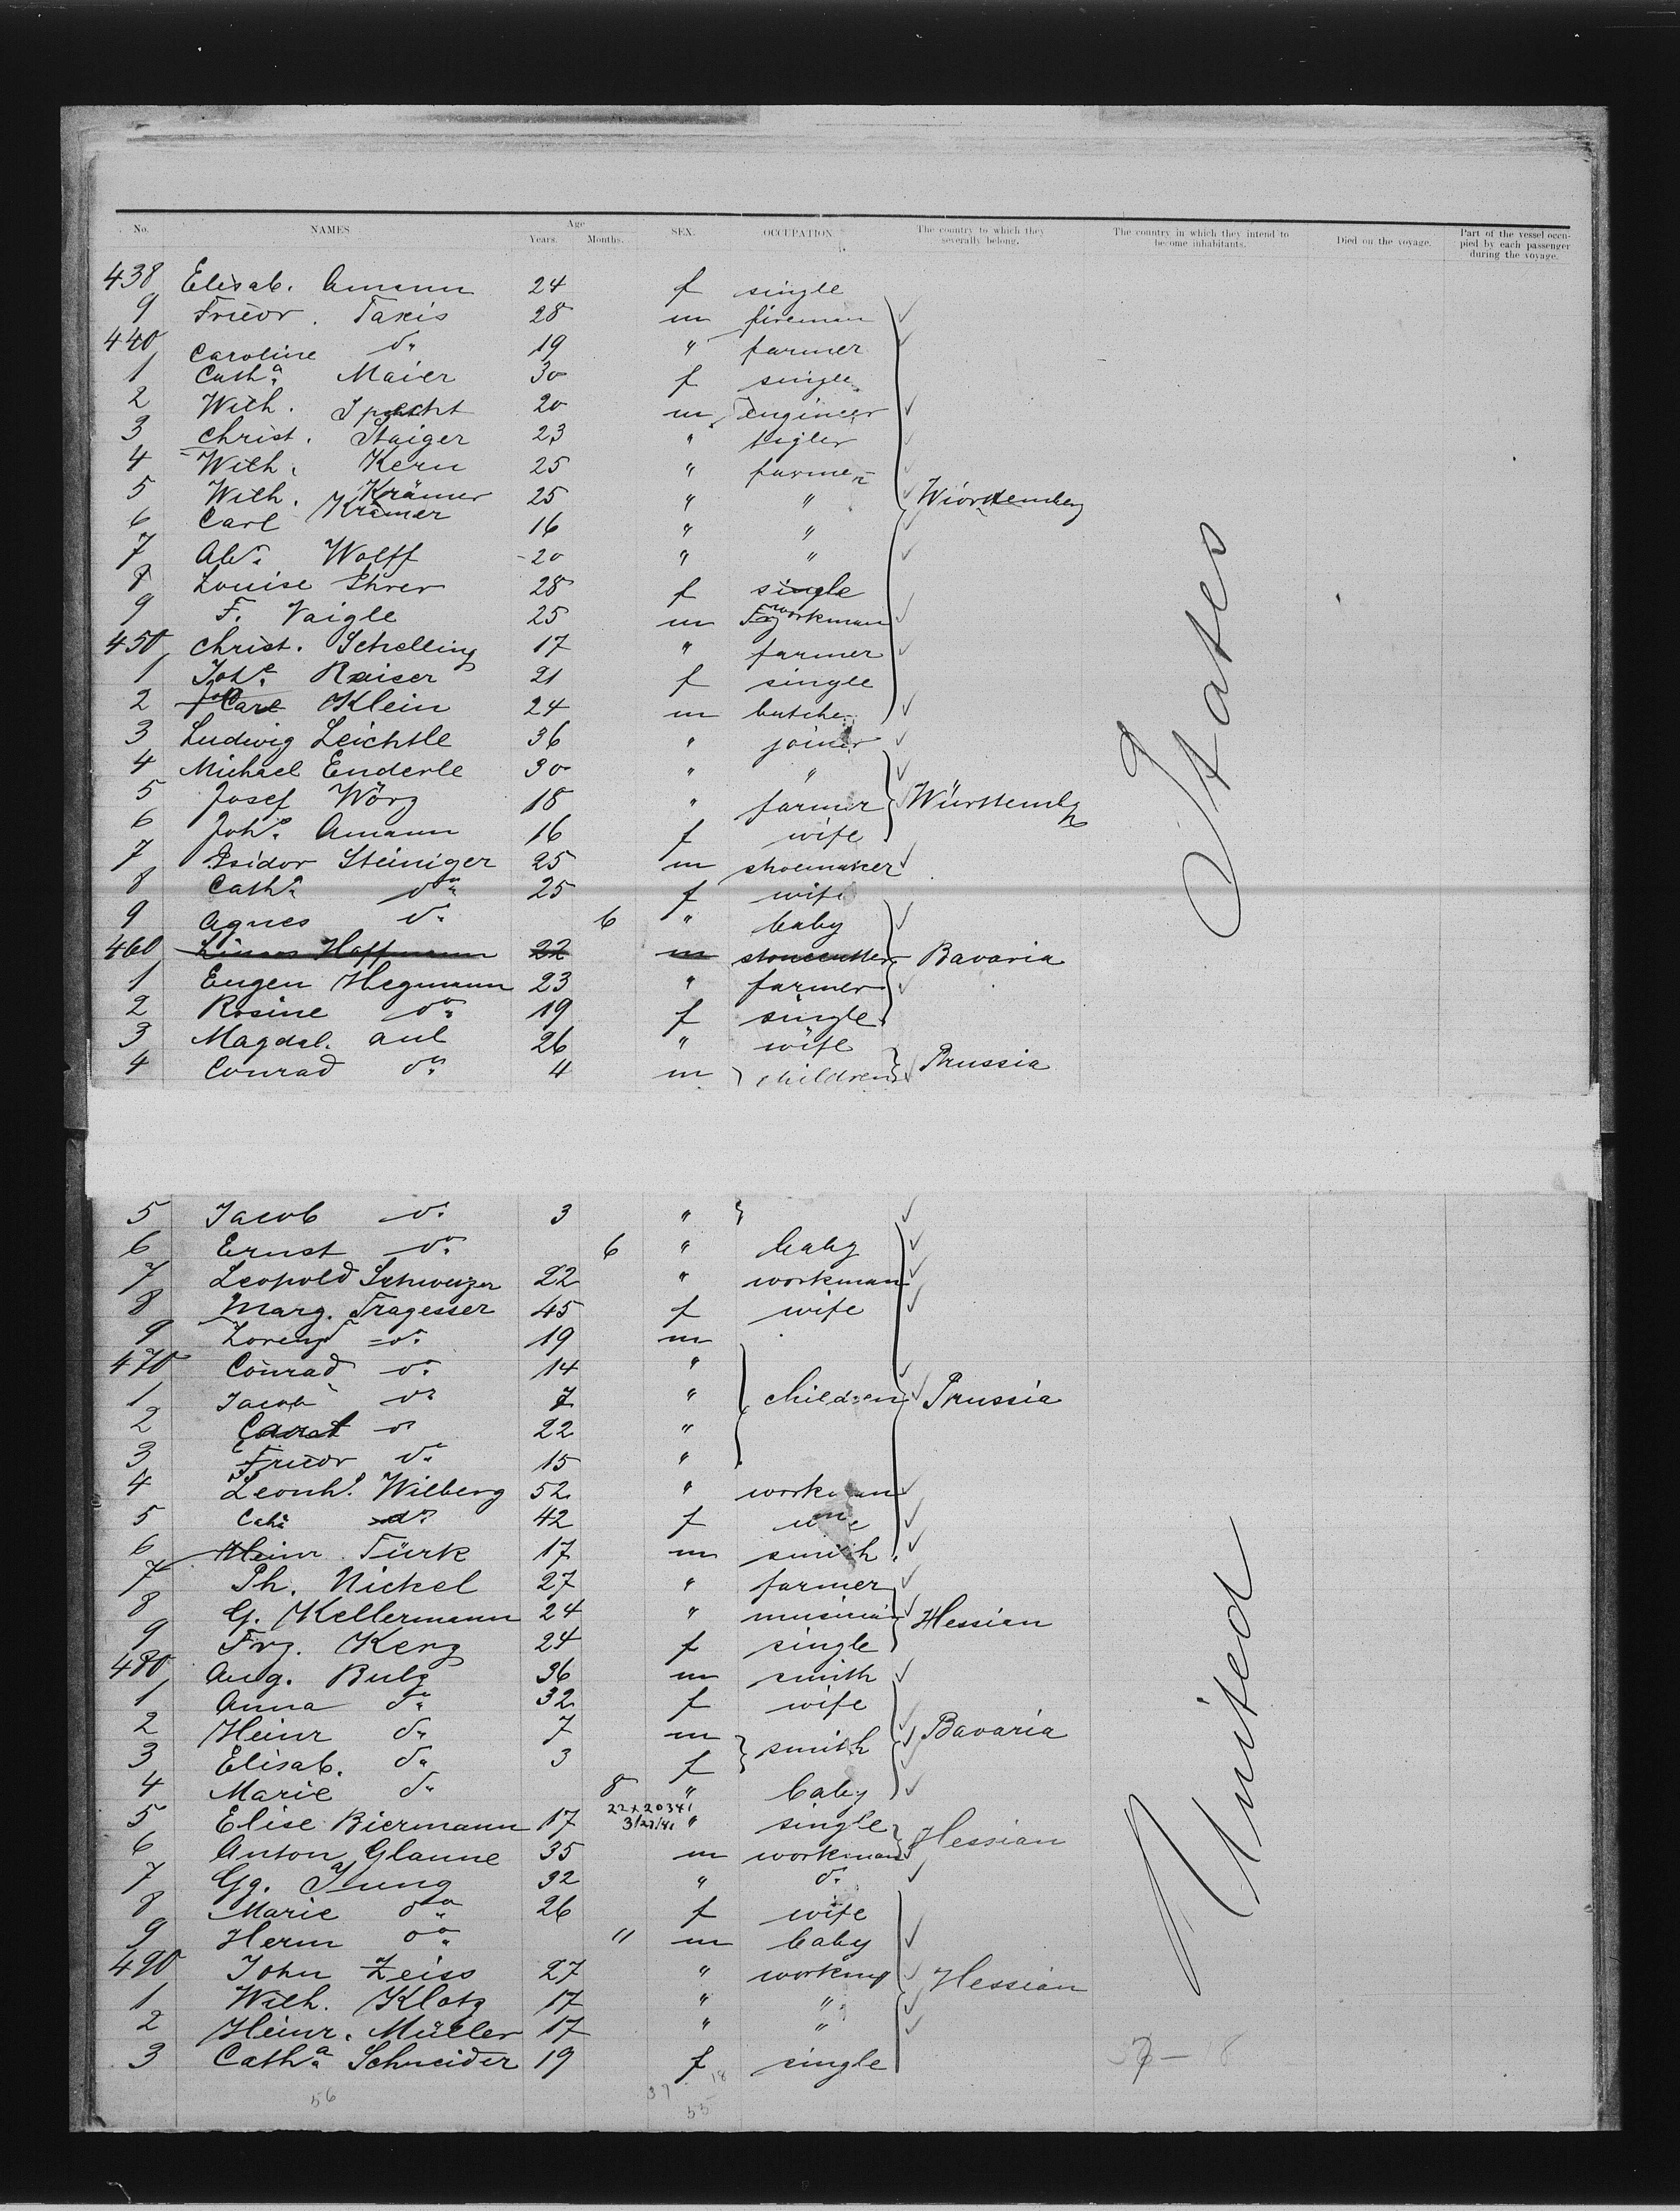 No. NAMES Age Years. Months. SEX. OCCUPATION The country to which they severally belong. The country in which they intend to become inhabitants. Died on the voyage. Part of the vessel occupied by each passenger during the voyage.
438 Elisab. Amann 24 f single
9 Friedr. Taxis 28 m fireman
440 Caroline do 19 " farmer
1 Catha Maier 30 f single
2 Wilh. Specht 20 m engineer
3 Christ. Staiger 23 "
4 Wilh. Kern 25 " farmer
5 Wilh. Krämer 25 " " Württemberg
6 Carl Krämer 16 " "
7 Wolff 20 " "
8 Louise 28 f single
9 F. Vaigle 25 m workman
450 Christ. Schelling 17 " farmer
1 Johe Kaiser 21 f single
2 Klein 24 m butcher
3 Ludwig Leichtle 36 " joiner
4 Michael Enderle 30 " "
5 Josef Wörz 18 " farmer Württembg
6 Amann 16 f wife
7 Isidor Steiniger 25 m shoemaker
8 Catha do 25 f wife
9 Agnes do 6 " baby
460 Hoffmann 22 m stonecutter Bavaria
1 Eugen Hegmann 23 " farmer
2 Rosine do 19 f single
3 Magdal. aul 26 " wife
4 Conrad do 4 m children Prussia
5 Jacob do 3 "
6 Ernst do 6 " baby
7 Leopold Schweizer 22 " workman
8 Marg. Tragesser 45 f wife
9 Lorenz do 19 m
470 Conrad do 14 "
1 Jacob do 7 " children Prussia
2 do 22 "
3 Friedr do 15 "
4 Leonhd. Wilberg 52 " workman
5 Cath do 42 f
6 Heinr. Türk 17 m smith
7 Ph. Nickel 27 " farmer
8 G. Kellermann 24 " Hessian
9 Frz. Kerz 24 f single
480 Aug. Bulz 36 m smith
1 Anna do 32 f wife
2 Heinr do 7 m smith Bavaria
3 Elisab. do 3 f
4 Marie do 8 " baby
22 x 20341
3/27/41
5 Elise Biermann 17 " single Hessian
6 Anton Glanne 35 m workman
7 Gg. Jung 32 " do
8 Marie do 26 f wife
9 Herm do 11 m baby
490 John Zeiss 27 " Hessian
1 Wilh. Klotz 17 " "
2 Heinr. Müller 17 " "
3 Catha Schneider 19 f single
United States
56 37 18
55